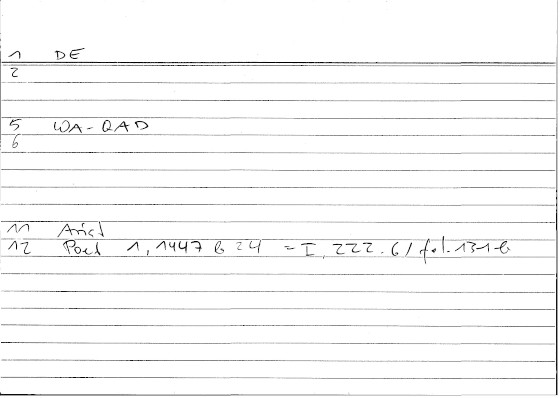 1 DE
2
5 WA-QAD
6
11 Arist
12 Poet 1, 1447 b 24 = I, 222.6 / fol. 131b